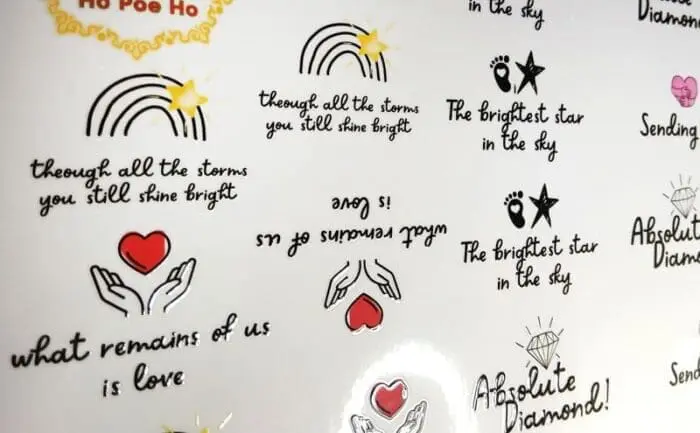 Ho Poe Ho
theough all the storms
you still shine bright
what remains of us
is love
theough all the storms
you still shine bright
what remains of us
is love
in the sky
The brightest star
in the sky
The brightest star
in the sky
Absolute
Diamond!
Sending